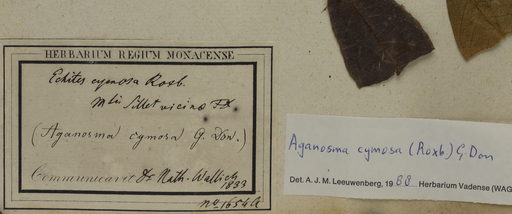 HERBARIUM REGIUM MONACENSE
Echites cymosa Roxb.
Mtii Sillet vicinæ
(Aganosma cymosa G. Don.)
Communicavit Dr Nath. Wallich
1833
no 1654A
Aganosma cymosa (Roxb) G Don
Det. A. J. M. Leeuwenberg, 1988 Herbarium Vadense (WAG